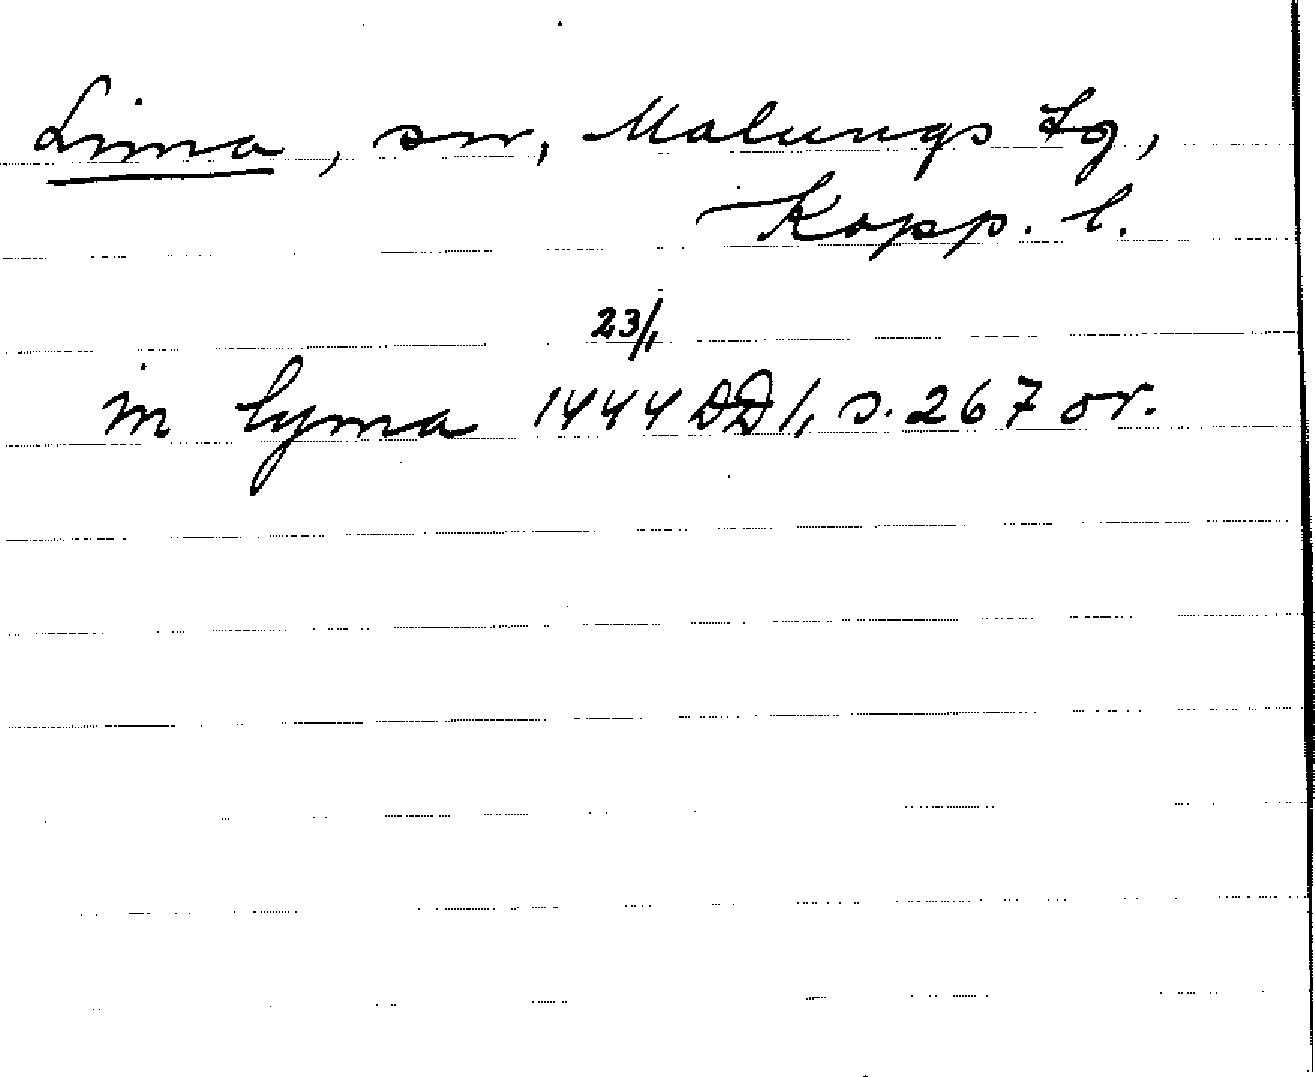 Lima, sn, Malungs tg,
Kopp. l.
23/1
in lyma 1444 DD 1, s. 267 or.